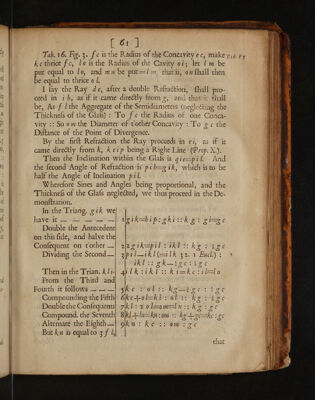 [ 61 ]
Tab. 16. Fig. 3. f c is the Radius of the Concavity e c, make
k c thrice f c, l o is the Radius of the Cavity o i; let l m be
put equal to l o, and m n be put = l m, that is, o n shall then
be equal to thrice o l.
I say the Ray d e, after a double Refraction, shall pro-
ceed in i h, as if it came directly from g, and that it shall
be, As f l the Aggregate of the Semidiameters (neglecting the
Thickness of the Glass) : To f c the Radius of one Conca-
vity :: So o m the Diameter of t'other Concavity : To g c the
Distance of the Point of Divergence.
By the first Refraction the Ray proceeds in e i, as if it
came directly from k, k e i p being a Right Line (Prop. X.).
Then the Inclination within the Glass is q i e = p i l. And
the second Angle of Refraction is p i h = g i k, which is to be
half the Angle of Inclination p i l.
Wherefore Sines and Angles being proportional, and the
Thickness of the Glass neglected, we thus proceed in the De-
monstration.
In the Triang. g i k we
have it 1 g i k = h i p : g k i :: k g : g i = g c
Double the Antecedent
on this side, and halve the
Consequent on t'other 2 2 g i k = p i l : i k l :: k g : ½ g c
Dividing the Second 3 p i l — i k l (= i l k 32. 1 Eucl.) :
i k l :: g k — ½ g c : ½ g c
Then in the Trian. k l i 4 i l k : i k l :: k i = k c : i l = l o
From the Third and
Fourth it follows 5 k c : o l :: k g — ½ g c : ½ g c
Compounding the Fifth 6 k c + o l = k l : o l :: k g : ½ g c
Double the Consequents 7 k l : 2 o l = o m = l n :: k g : g c
Compound. the Seventh 8 k l + l n = k n : o m :: k g + g c = k c : g c
Alternate the Eighth 9 k n : k c :: o m : g c
But k n is equal to 3 f l,
that